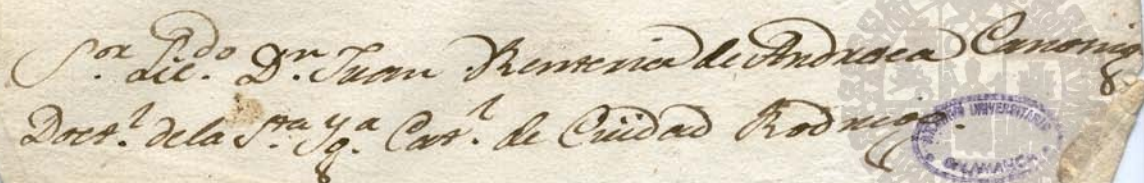 S.or Lic.do D.n Juan Renteria de Andraca Canonig
Doct.l de la S.ta Yg.a Cat.l de Ciüdad Rodrigo.
ARCHIVO UNIVERSITARIO
SALAMANCA